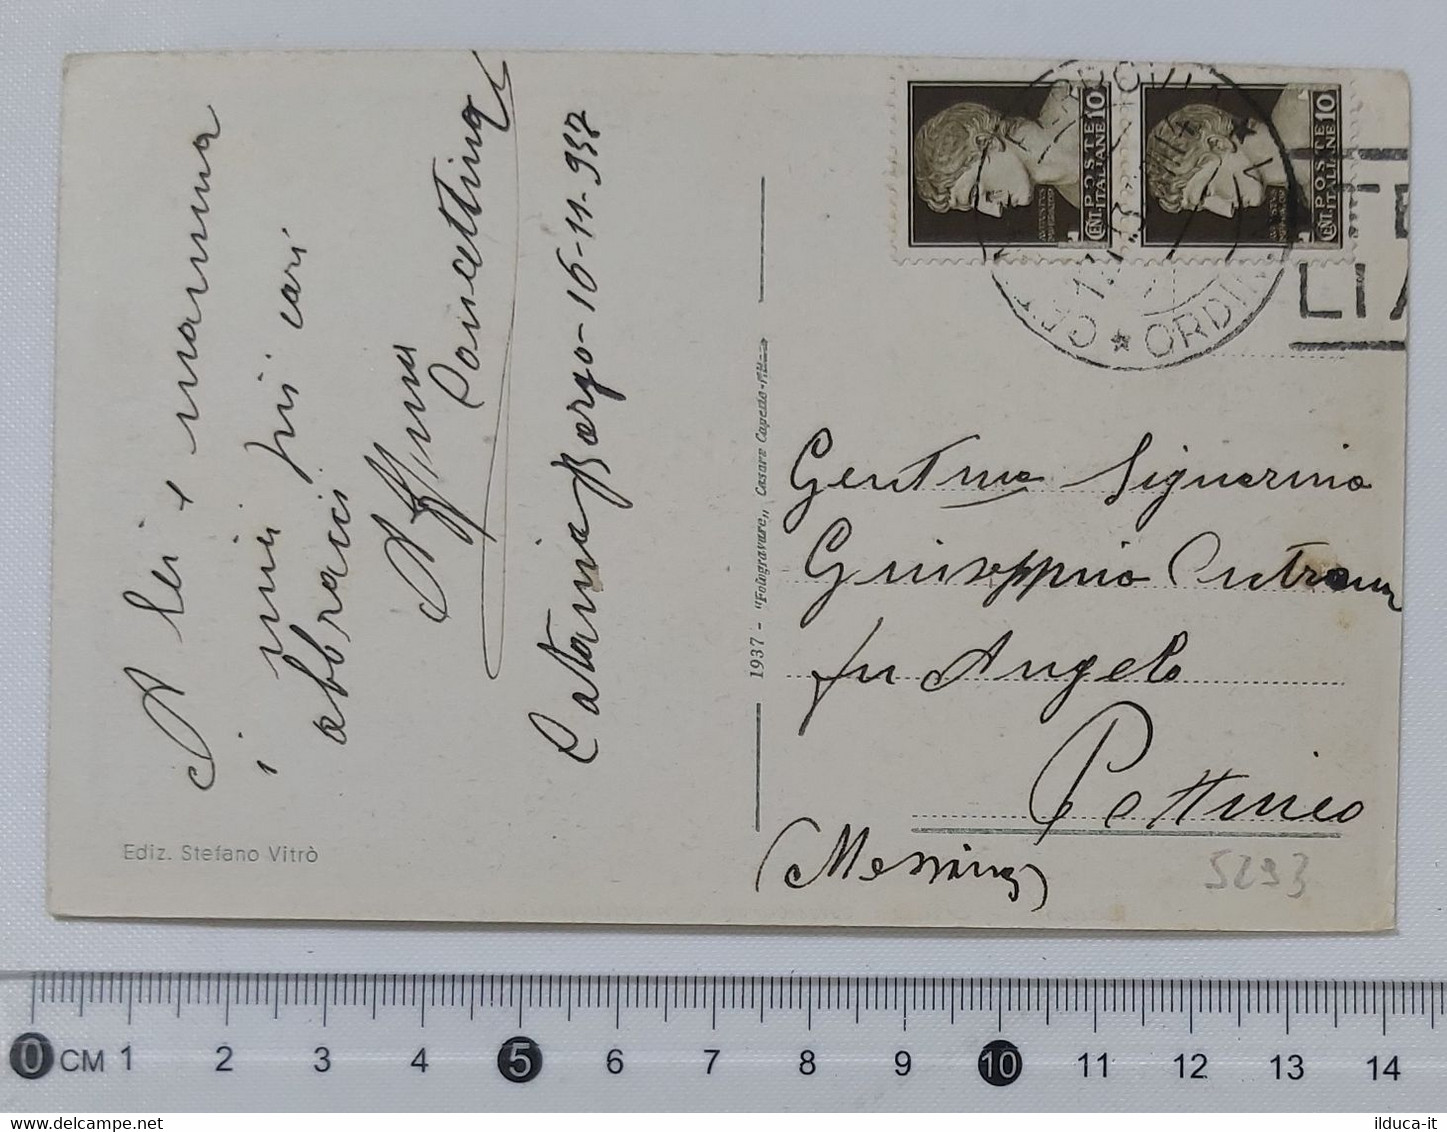 A lei e mamma
i miei più cari
abbracci
Affma
Concettina
Catania Borgo - 16-11-937
Ediz. Stefano Vitrò
1937 - "Fotogravure" Cesare Capello -
POSTE ITALIANE
CENT. 10
POSTE ITALIANE
CENT. 10
ORDIN
Gentma Signorina
Giuseppina
fu Angelo
Pettineo
(Messina)
5293
0 CM 1 2 3 4 5 6 7 8 9 10 11 12 13 14
www.delcampe.net
ilduca-it